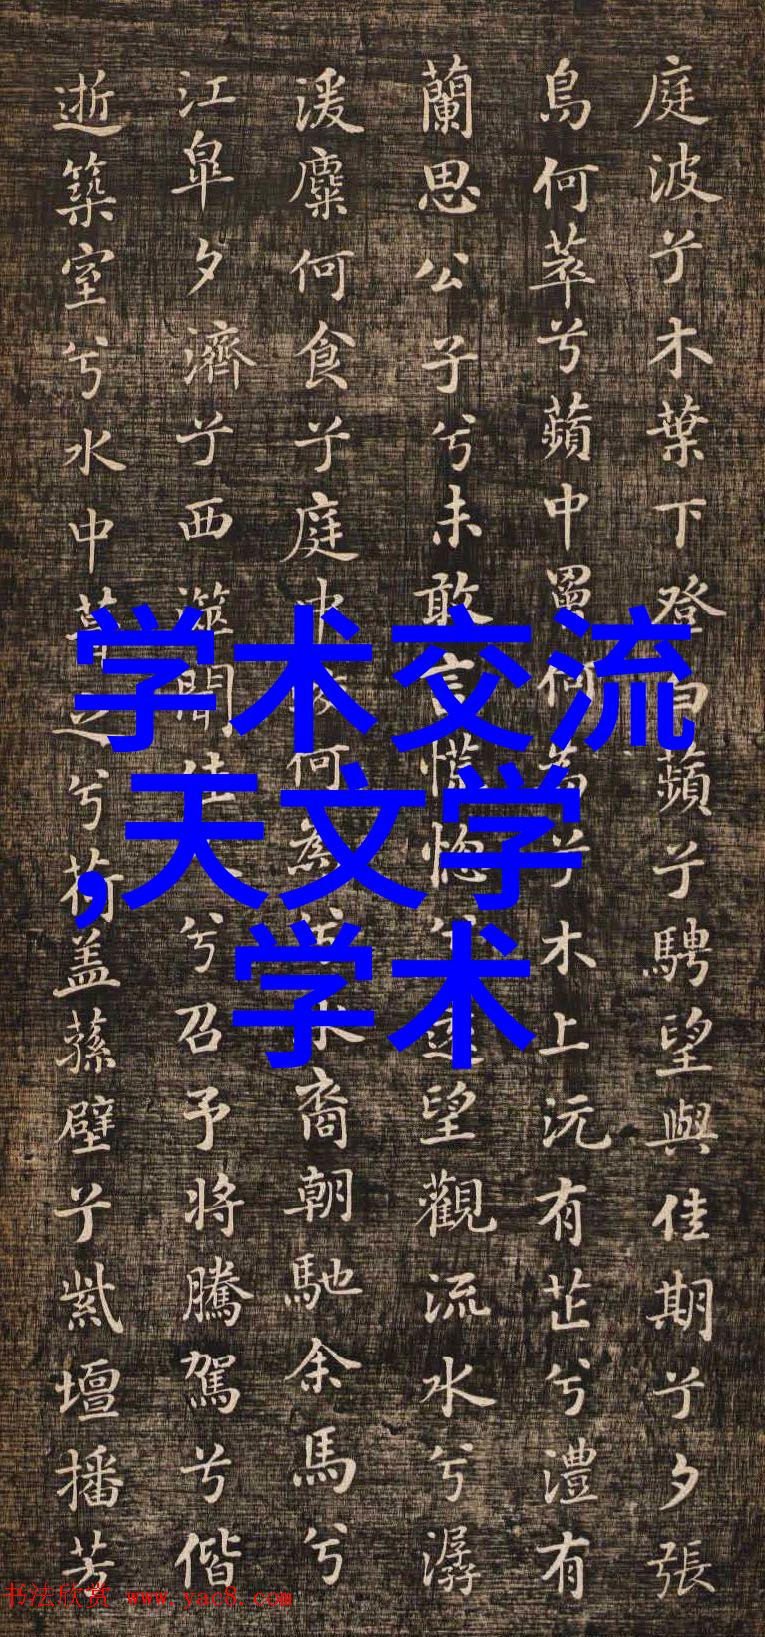 庭波兮木葉下登白蘋兮騁望與佳期兮夕張
鳥何萃兮蘋中罾何為兮木上沅有芷兮澧有
蘭思公子兮未敢言慌惚兮遠望觀流水兮潺
湲麋何食兮庭中 何為兮水裔朝馳余馬兮
江皋夕濟兮西澨聞佳 兮召予將騰駕兮偕
逝築室兮水中葺之兮荷盖蓀壁兮紫壇播芳
学术交流
,天文学
学术
书法欣赏 www.yac8.com